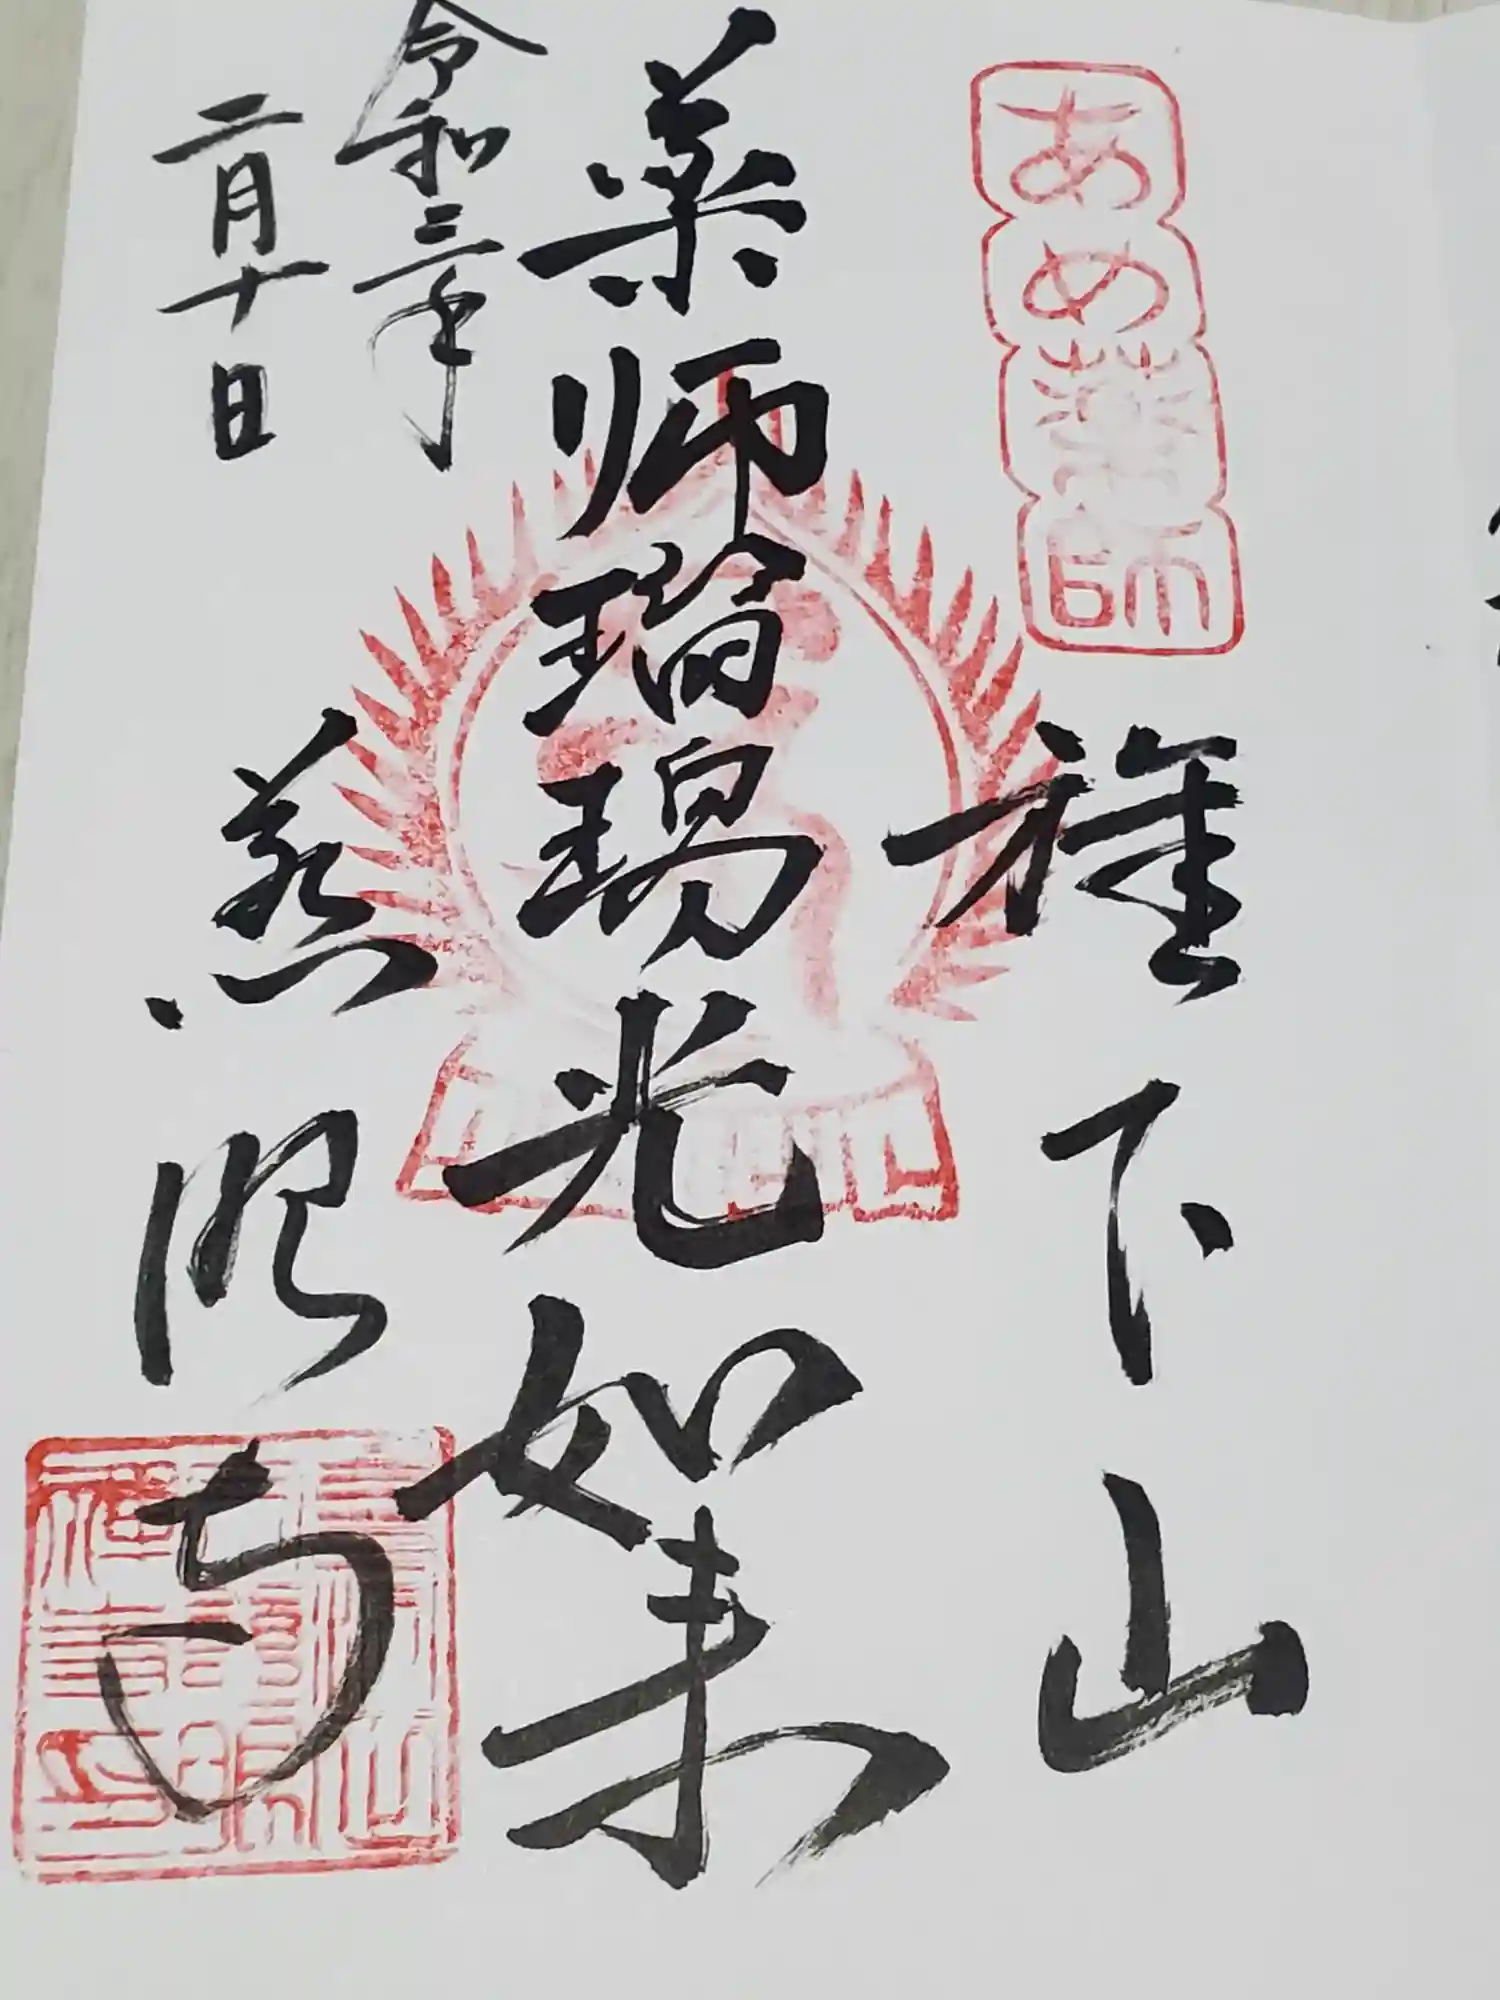 あめ薬師
下山
薬師瑠璃光如来
令和三年
二月十日
慈眼寺